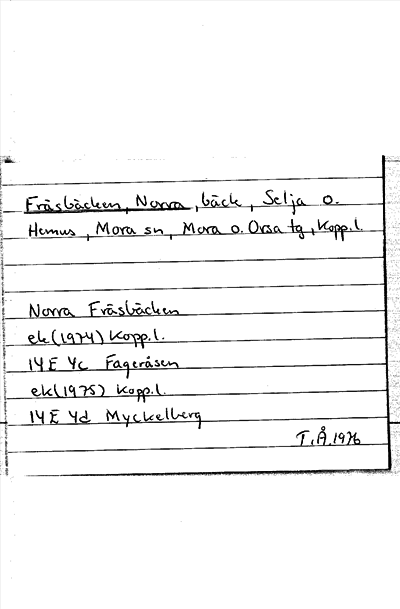 Fräsbäcken, Norra, bäck, Selja o.
Hemus, Mora sn, Mora o. Orsa tg, Kopp.l.
Norra Fräsbäcken
ek (1974) Kopp.l.
14E 4c Fageråsen
ek (1975) Kopp.l.
14E 4d Myckelberg
T.Å. 1976